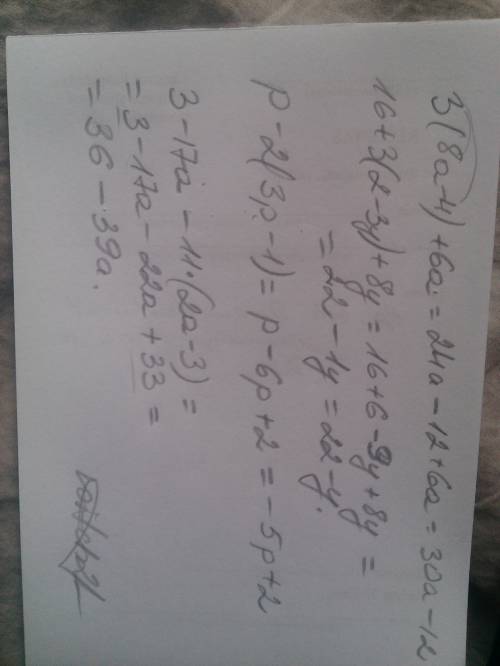 3(8a-4)+6a = 24a-12+6a = 30a-12
16+3(2-3y)+8y = 16+6-9y+8y =
= 22-1y = 22-y.
p-2(3p-1) = p-6p+2 = -5p+2
3-17a-11·(2a-3) =
= 3-17a-22a+33 =
= 36-39a.